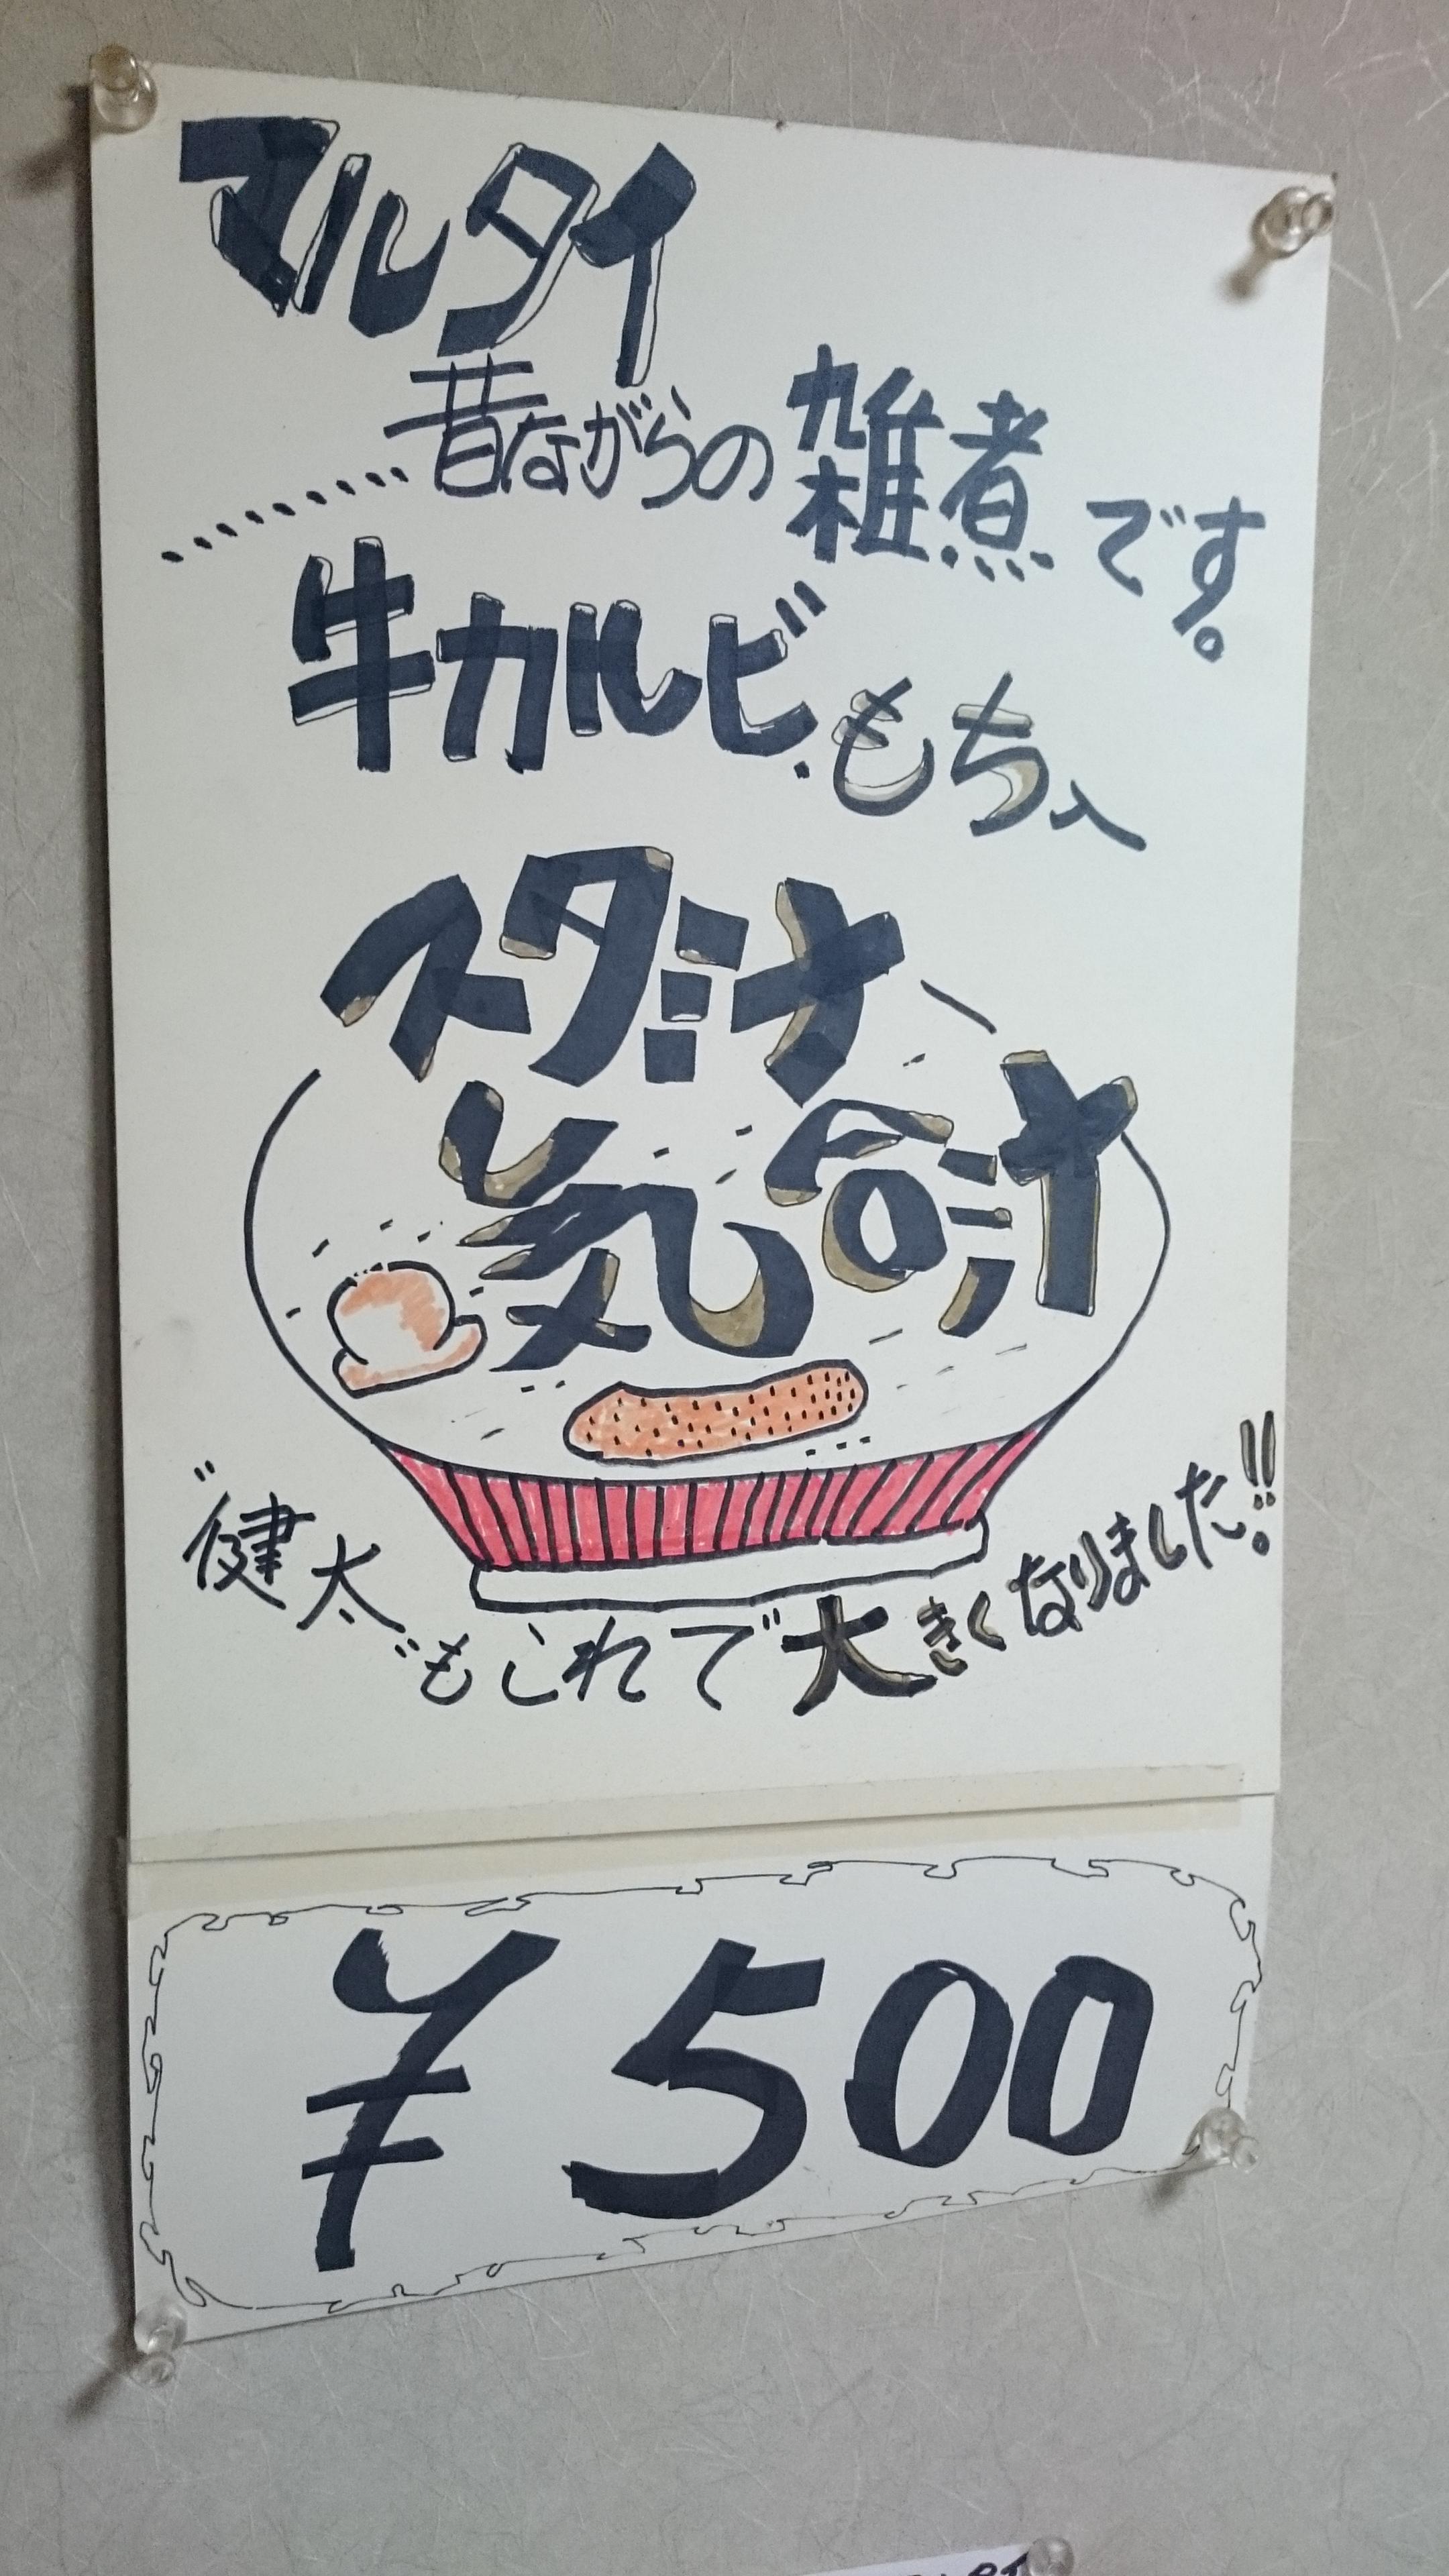 マルタイ
昔ながらの雑煮です。
牛カルビ.もち入
スタミ汁
気合汁
"健太"もこれで大きくなりました!!
¥500